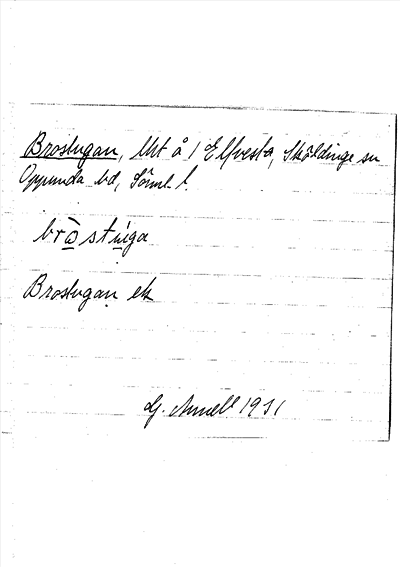 Brostugan, lht å 1 Elfvesta, Sköldinge sn
Oppunda hd, Söml l.
bròstùga
Brostugan ek
G. Annell 1931